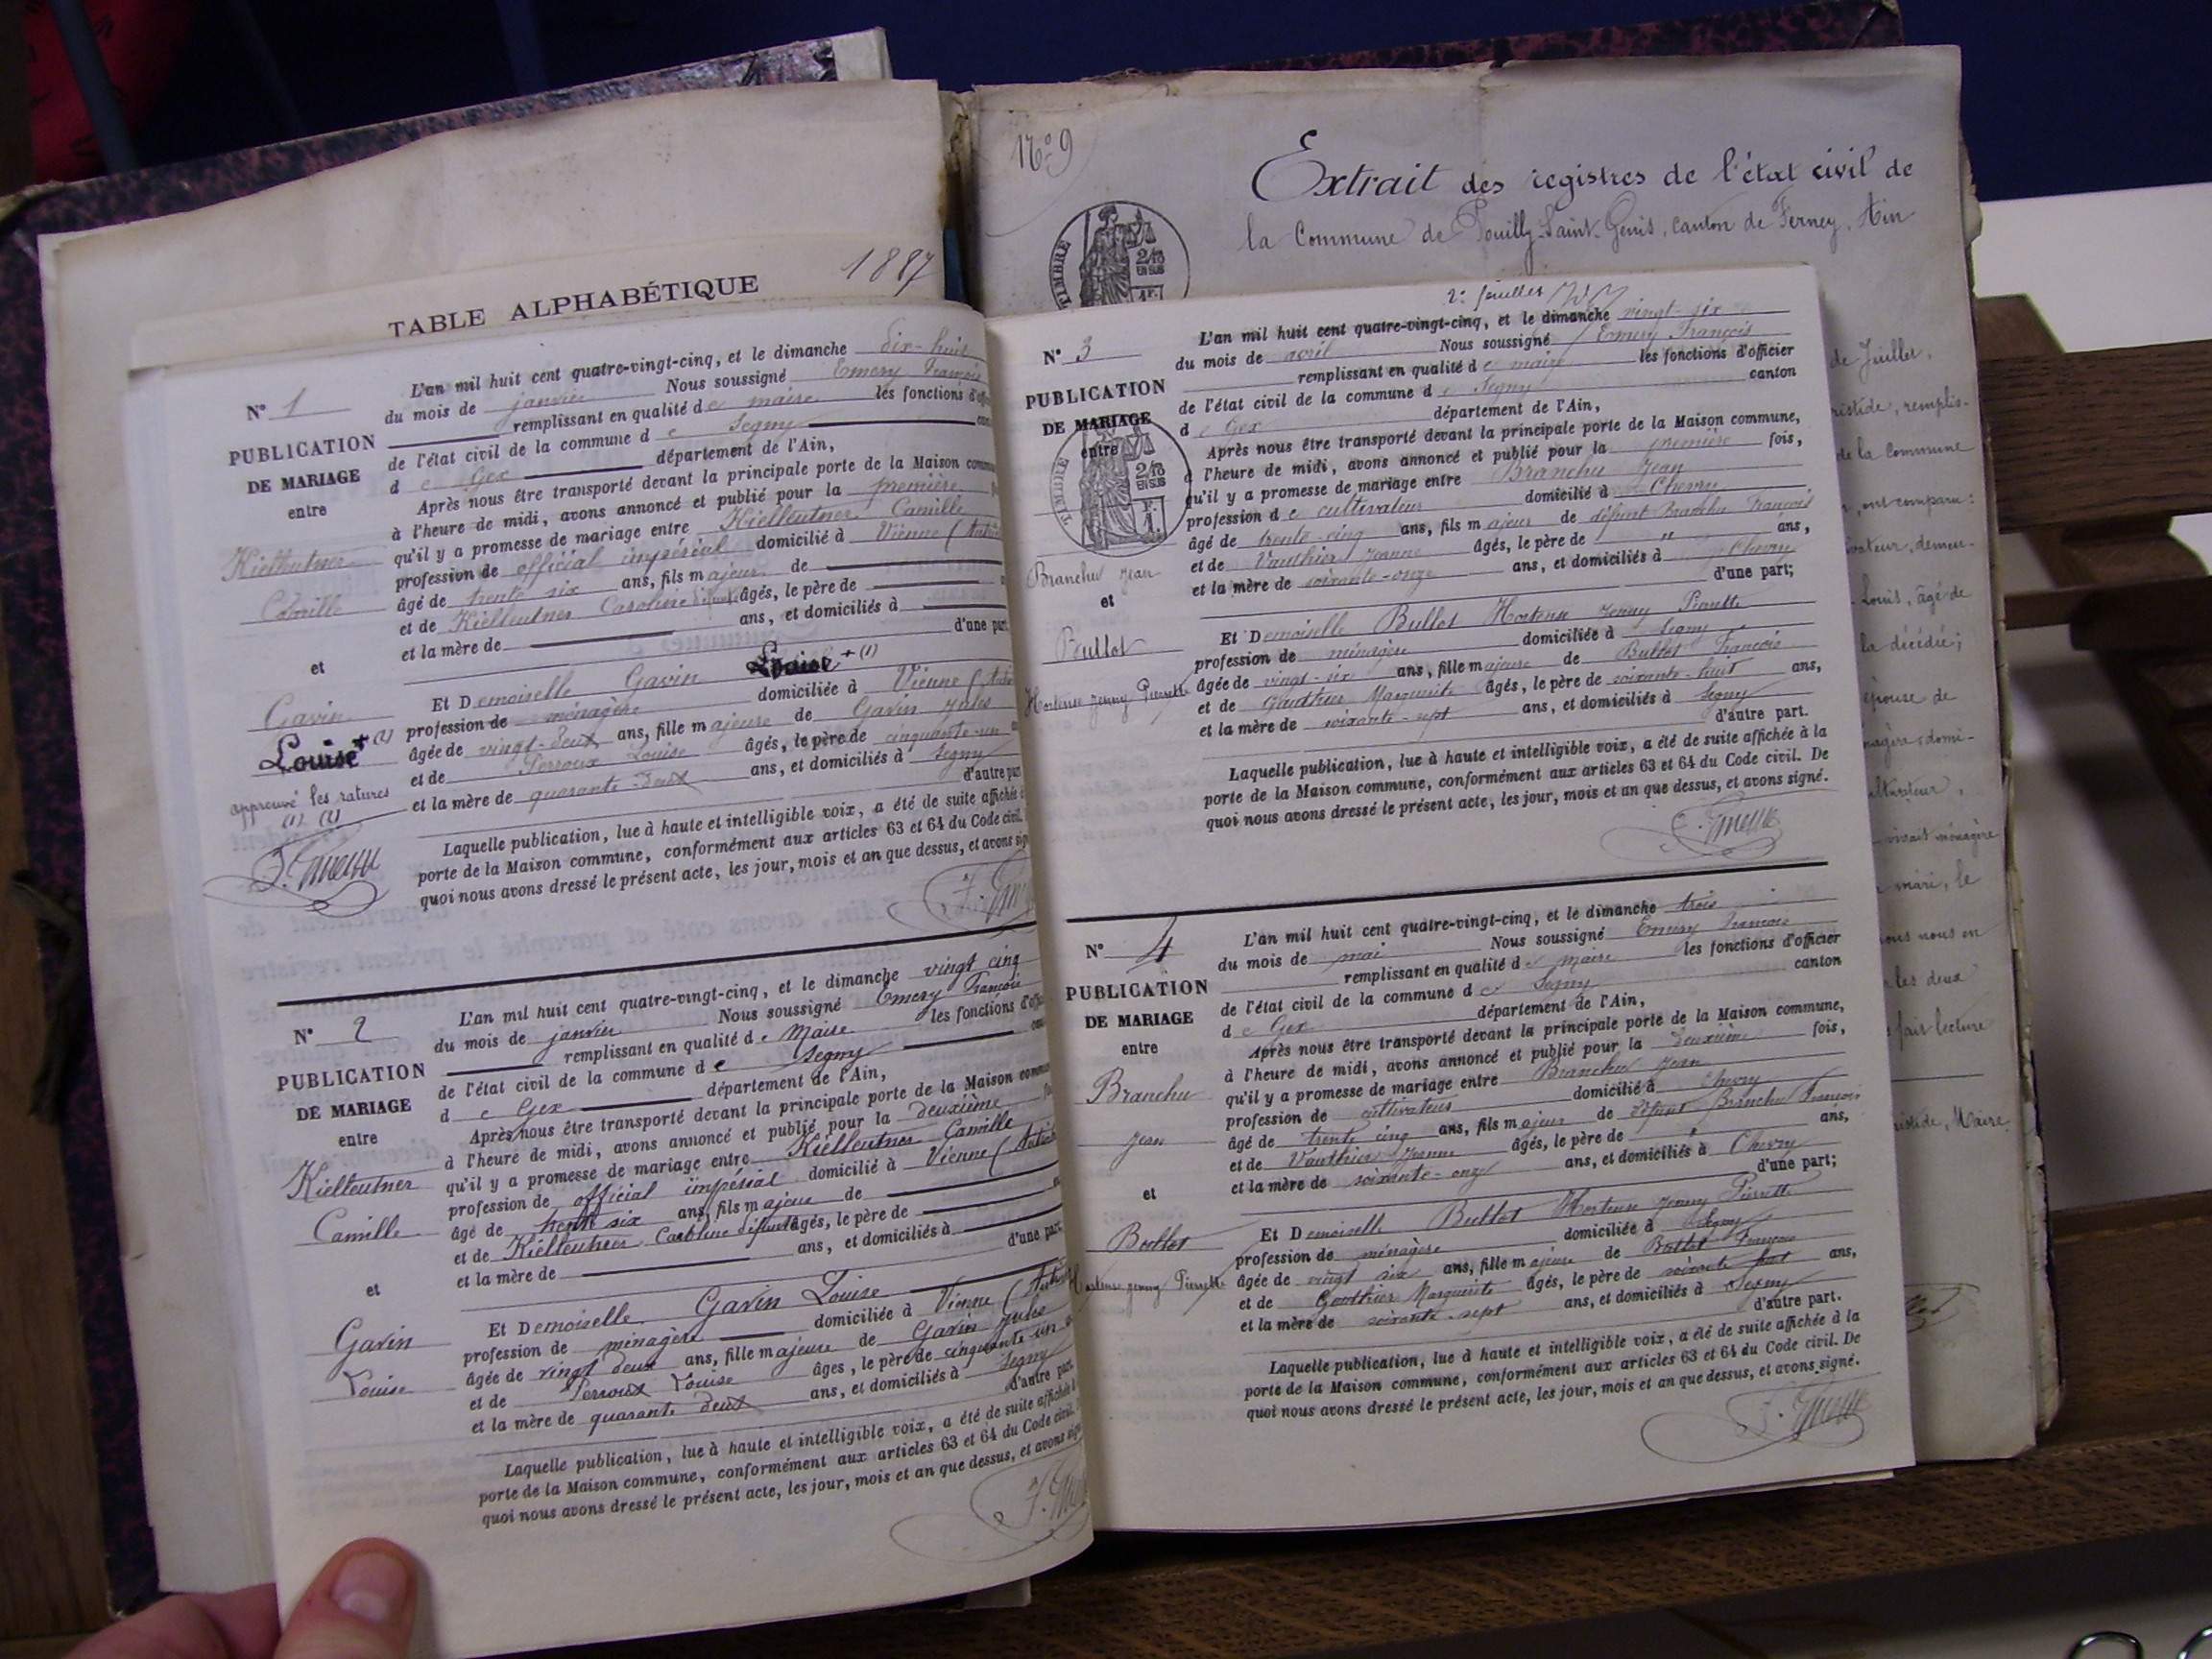 TABLE ALPHABÉTIQUE
1887
N° 1
PUBLICATION
DE MARIAGE
entre
Kielleutner
Camille
et
Gavin
Louise + (1)
approuvé les ratures
(1) (2)
L'an mil huit cent quatre-vingt-cinq, et le dimanche dix-huit
du mois de janvier Nous soussigné Emery François
remplissant en qualité de maire les fonctions d'offi
de l'état civil de la commune de Segny can
de Gex département de l'Ain,
Après nous être transporté devant la principale porte de la Maison commu
à l'heure de midi, avons annoncé et publié pour la première
qu'il y a promesse de mariage entre Kielleutner Camille
profession de official impérial domicilié à Vienne (Autri
âgé de trente six ans, fils majeur de
et de Kielleutner Caroline âgés, le père de
et la mère de ans, et domiciliés à
d'une part
Et Demoiselle Gavin Louise + (1)
profession de ménagère domiciliée à Vienne (Autri
âgée de vingt-deux ans, fille majeure de Gavin Jules
et de Perroux Louise âgés, le père de cinquante-un
et la mère de quarante deux ans, et domiciliés à Segny
d'autre part
Laquelle publication, lue à haute et intelligible voix, a été de suite affichée à
porte de la Maison commune, conformément aux articles 63 et 64 du Code civil.
quoi nous avons dressé le présent acte, les jour, mois et an que dessus, et avons sig
N° 2
PUBLICATION
DE MARIAGE
entre
Kielleutner
Camille
et
Gavin
Louise
L'an mil huit cent quatre-vingt-cinq, et le dimanche vingt cinq
du mois de janvier Nous soussigné Emery François
remplissant en qualité de Maire les fonctions d'offi
de l'état civil de la commune de Segny
de Gex département de l'Ain,
Après nous être transporté devant la principale porte de la Maison commu
à l'heure de midi, avons annoncé et publié pour la deuxième
qu'il y a promesse de mariage entre Kielleutner Camille
profession de official impérial domicilié à Vienne (Autri
âgé de trente six ans, fils majeur de
et de Kielleutner Caroline défunte âgés, le père de
et la mère de ans, et domiciliés à
d'une part
Et Demoiselle Gavin Louise
profession de ménagère domiciliée à Vienne (Autri
âgée de vingt deux ans, fille majeure de Gavin Jules
et de Perroux Louise âgés, le père de cinquante un
et la mère de quarante deux ans, et domiciliés à Segny
d'autre part
Laquelle publication, lue à haute et intelligible voix, a été de suite affichée à
porte de la Maison commune, conformément aux articles 63 et 64 du Code civil.
quoi nous avons dressé le présent acte, les jour, mois et an que dessus, et avons sig
N° 9
Extrait des registres de l'état civil de
la Commune de Pouilly-Saint-Genis, canton de Ferney, Ain
TIMBRE
2/10
EN SUS
1F.
2e feuillet
N° 3
PUBLICATION
DE MARIAGE
entre
TIMBRE
2/10
EN SUS
Branchu Jean
et
Bullot
Hortense Jenny Pierrette
L'an mil huit cent quatre-vingt-cinq, et le dimanche vingt-six
du mois de avril Nous soussigné Emery François
remplissant en qualité de maire les fonctions d'officier
de l'état civil de la commune de Segny canton
de Gex département de l'Ain,
Après nous être transporté devant la principale porte de la Maison commune,
à l'heure de midi, avons annoncé et publié pour la première fois,
qu'il y a promesse de mariage entre Branchu Jean
profession de cultivateur domicilié à Chevry
âgé de trente-cinq ans, fils majeur de défunt Branchu François
et de Vauthier Jeanne âgés, le père de " ans,
et la mère de soixante-onze ans, et domiciliés à Chevry
d'une part;
Et Demoiselle Bullot Hortense Jenny Pierrette
profession de ménagère domiciliée à Segny
âgée de vingt-six ans, fille majeure de Bullot François
et de Gauthier Marguerite âgés, le père de soixante-huit ans,
et la mère de soixante-sept ans, et domiciliés à Segny
d'autre part.
Laquelle publication, lue à haute et intelligible voix, a été de suite affichée à la
porte de la Maison commune, conformément aux articles 63 et 64 du Code civil. De
quoi nous avons dressé le présent acte, les jour, mois et an que dessus, et avons signé.
N° 4
PUBLICATION
DE MARIAGE
entre
Branchu
Jean
et
Bullot
Hortense Jenny Pierrette
L'an mil huit cent quatre-vingt-cinq, et le dimanche trois
du mois de mai Nous soussigné Emery François
remplissant en qualité de maire les fonctions d'officier
de l'état civil de la commune de Segny canton
de Gex département de l'Ain,
Après nous être transporté devant la principale porte de la Maison commune,
à l'heure de midi, avons annoncé et publié pour la deuxième fois,
qu'il y a promesse de mariage entre Branchu Jean
profession de cultivateur domicilié à Chevry
âgé de trente cinq ans, fils majeur de défunt Branchu François
et de Vauthier Jeanne âgés, le père de " ans,
et la mère de soixante-onze ans, et domiciliés à Chevry
d'une part;
Et Demoiselle Bullot Hortense Jenny Pierrette
profession de ménagère domiciliée à Segny
âgée de vingt six ans, fille majeure de Bullot François
et de Gauthier Marguerite âgés, le père de soixante huit ans,
et la mère de soixante-sept ans, et domiciliés à Segny
d'autre part.
Laquelle publication, lue à haute et intelligible voix, a été de suite affichée à la
porte de la Maison commune, conformément aux articles 63 et 64 du Code civil. De
quoi nous avons dressé le présent acte, les jour, mois et an que dessus, et avons signé.
de Juillet,
ristide, remplis-
de la Commune
, ont comparu:
ivateur, demeu-
Louis, âgé de
la décédée;
épouse de
nagère, domi-
ultivateur,
vivait ménagère
mari, le
ous nous en
les deux
fait lecture
ristide, Maire.